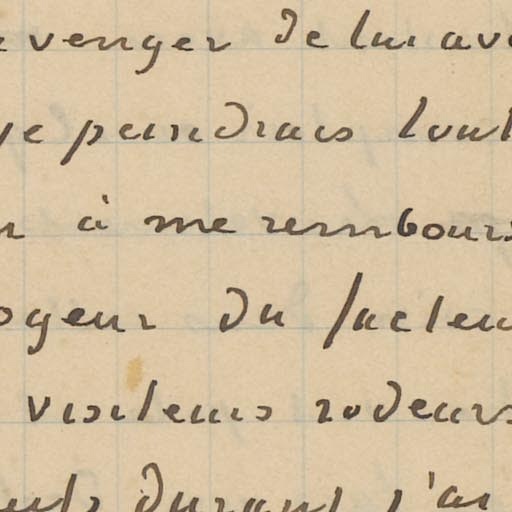 venger de lui av
je peindrais tout
à me rembours
oyeur du facteu
visiteurs rodeurs
durant j'ai